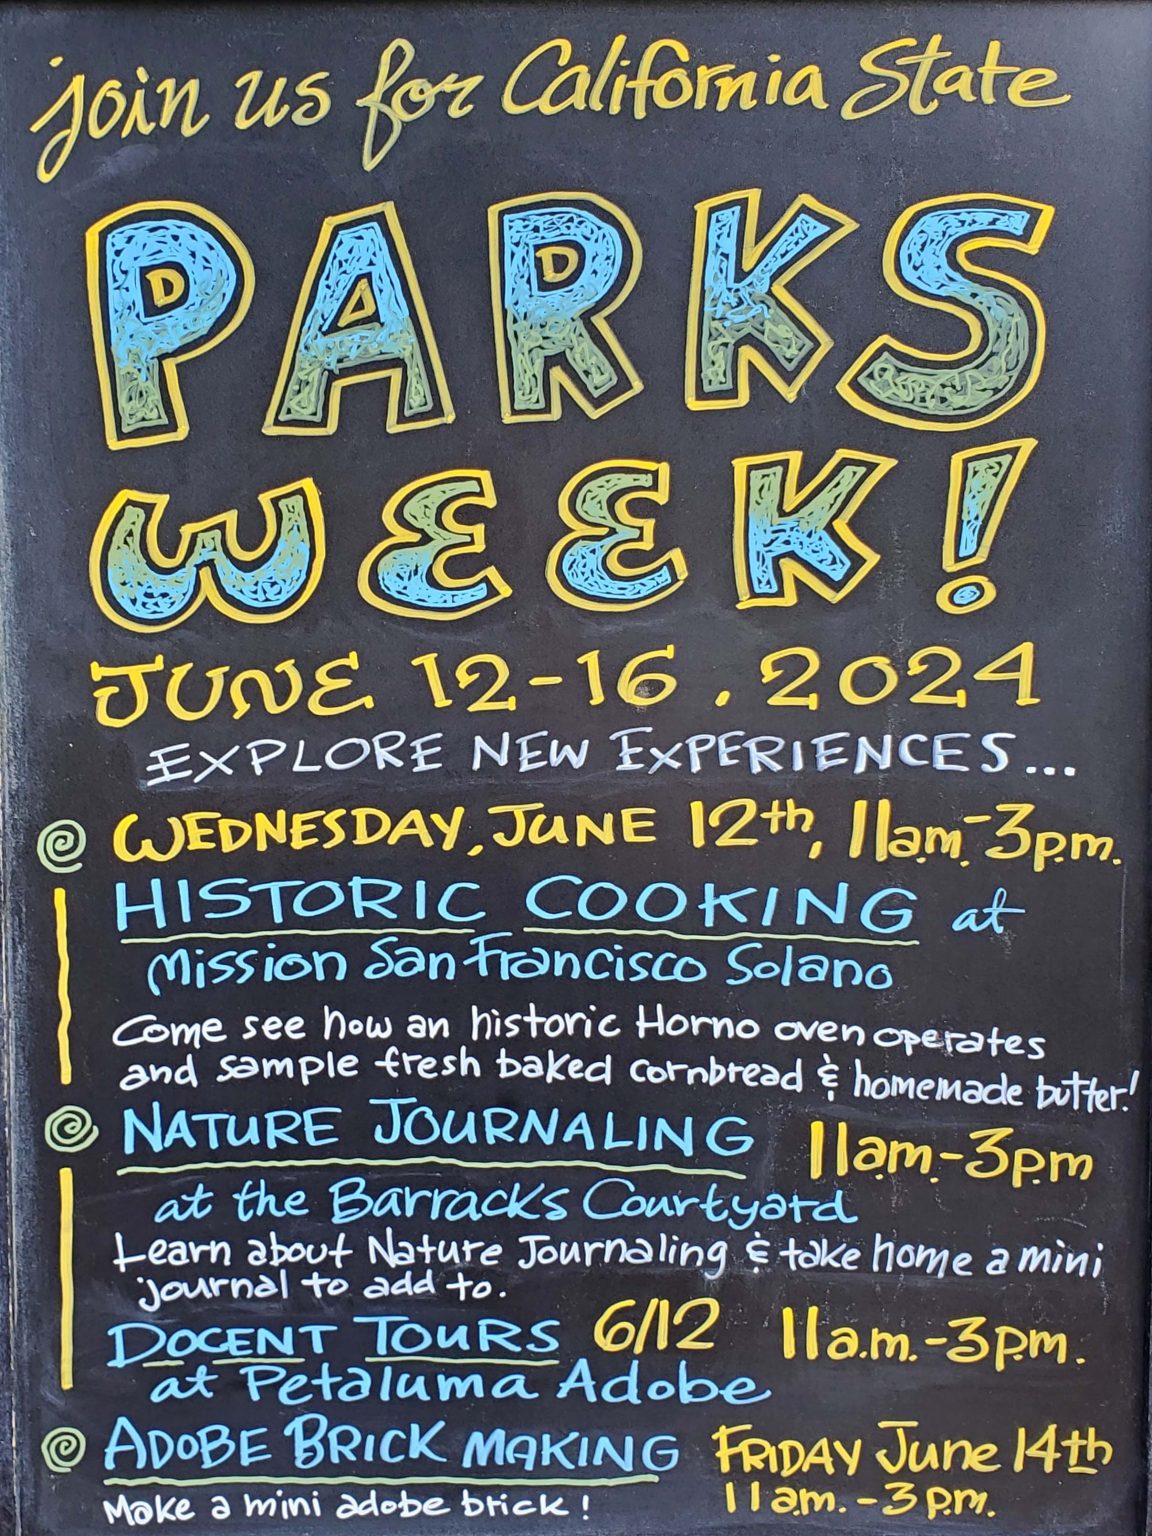 join us for California State
PARKS
WEEK!
JUNE 12-16, 2024
EXPLORE NEW EXPERIENCES...
WEDNESDAY, JUNE 12th, 11am.-3p.m.
HISTORIC COOKING at
Mission San Francisco Solano
Come see how an historic Horno oven operates
and sample fresh baked cornbread & homemade butter!
NATURE JOURNALING 11am-3pm
at the Barracks Courtyard
Learn about Nature Journaling & take home a mini
journal to add to.
DOCENT TOURS 6/12 11a.m.-3pm.
at Petaluma Adobe
ADOBE BRICK MAKING FRIDAY June 14th
Make a mini adobe brick! 11am.-3p.m.